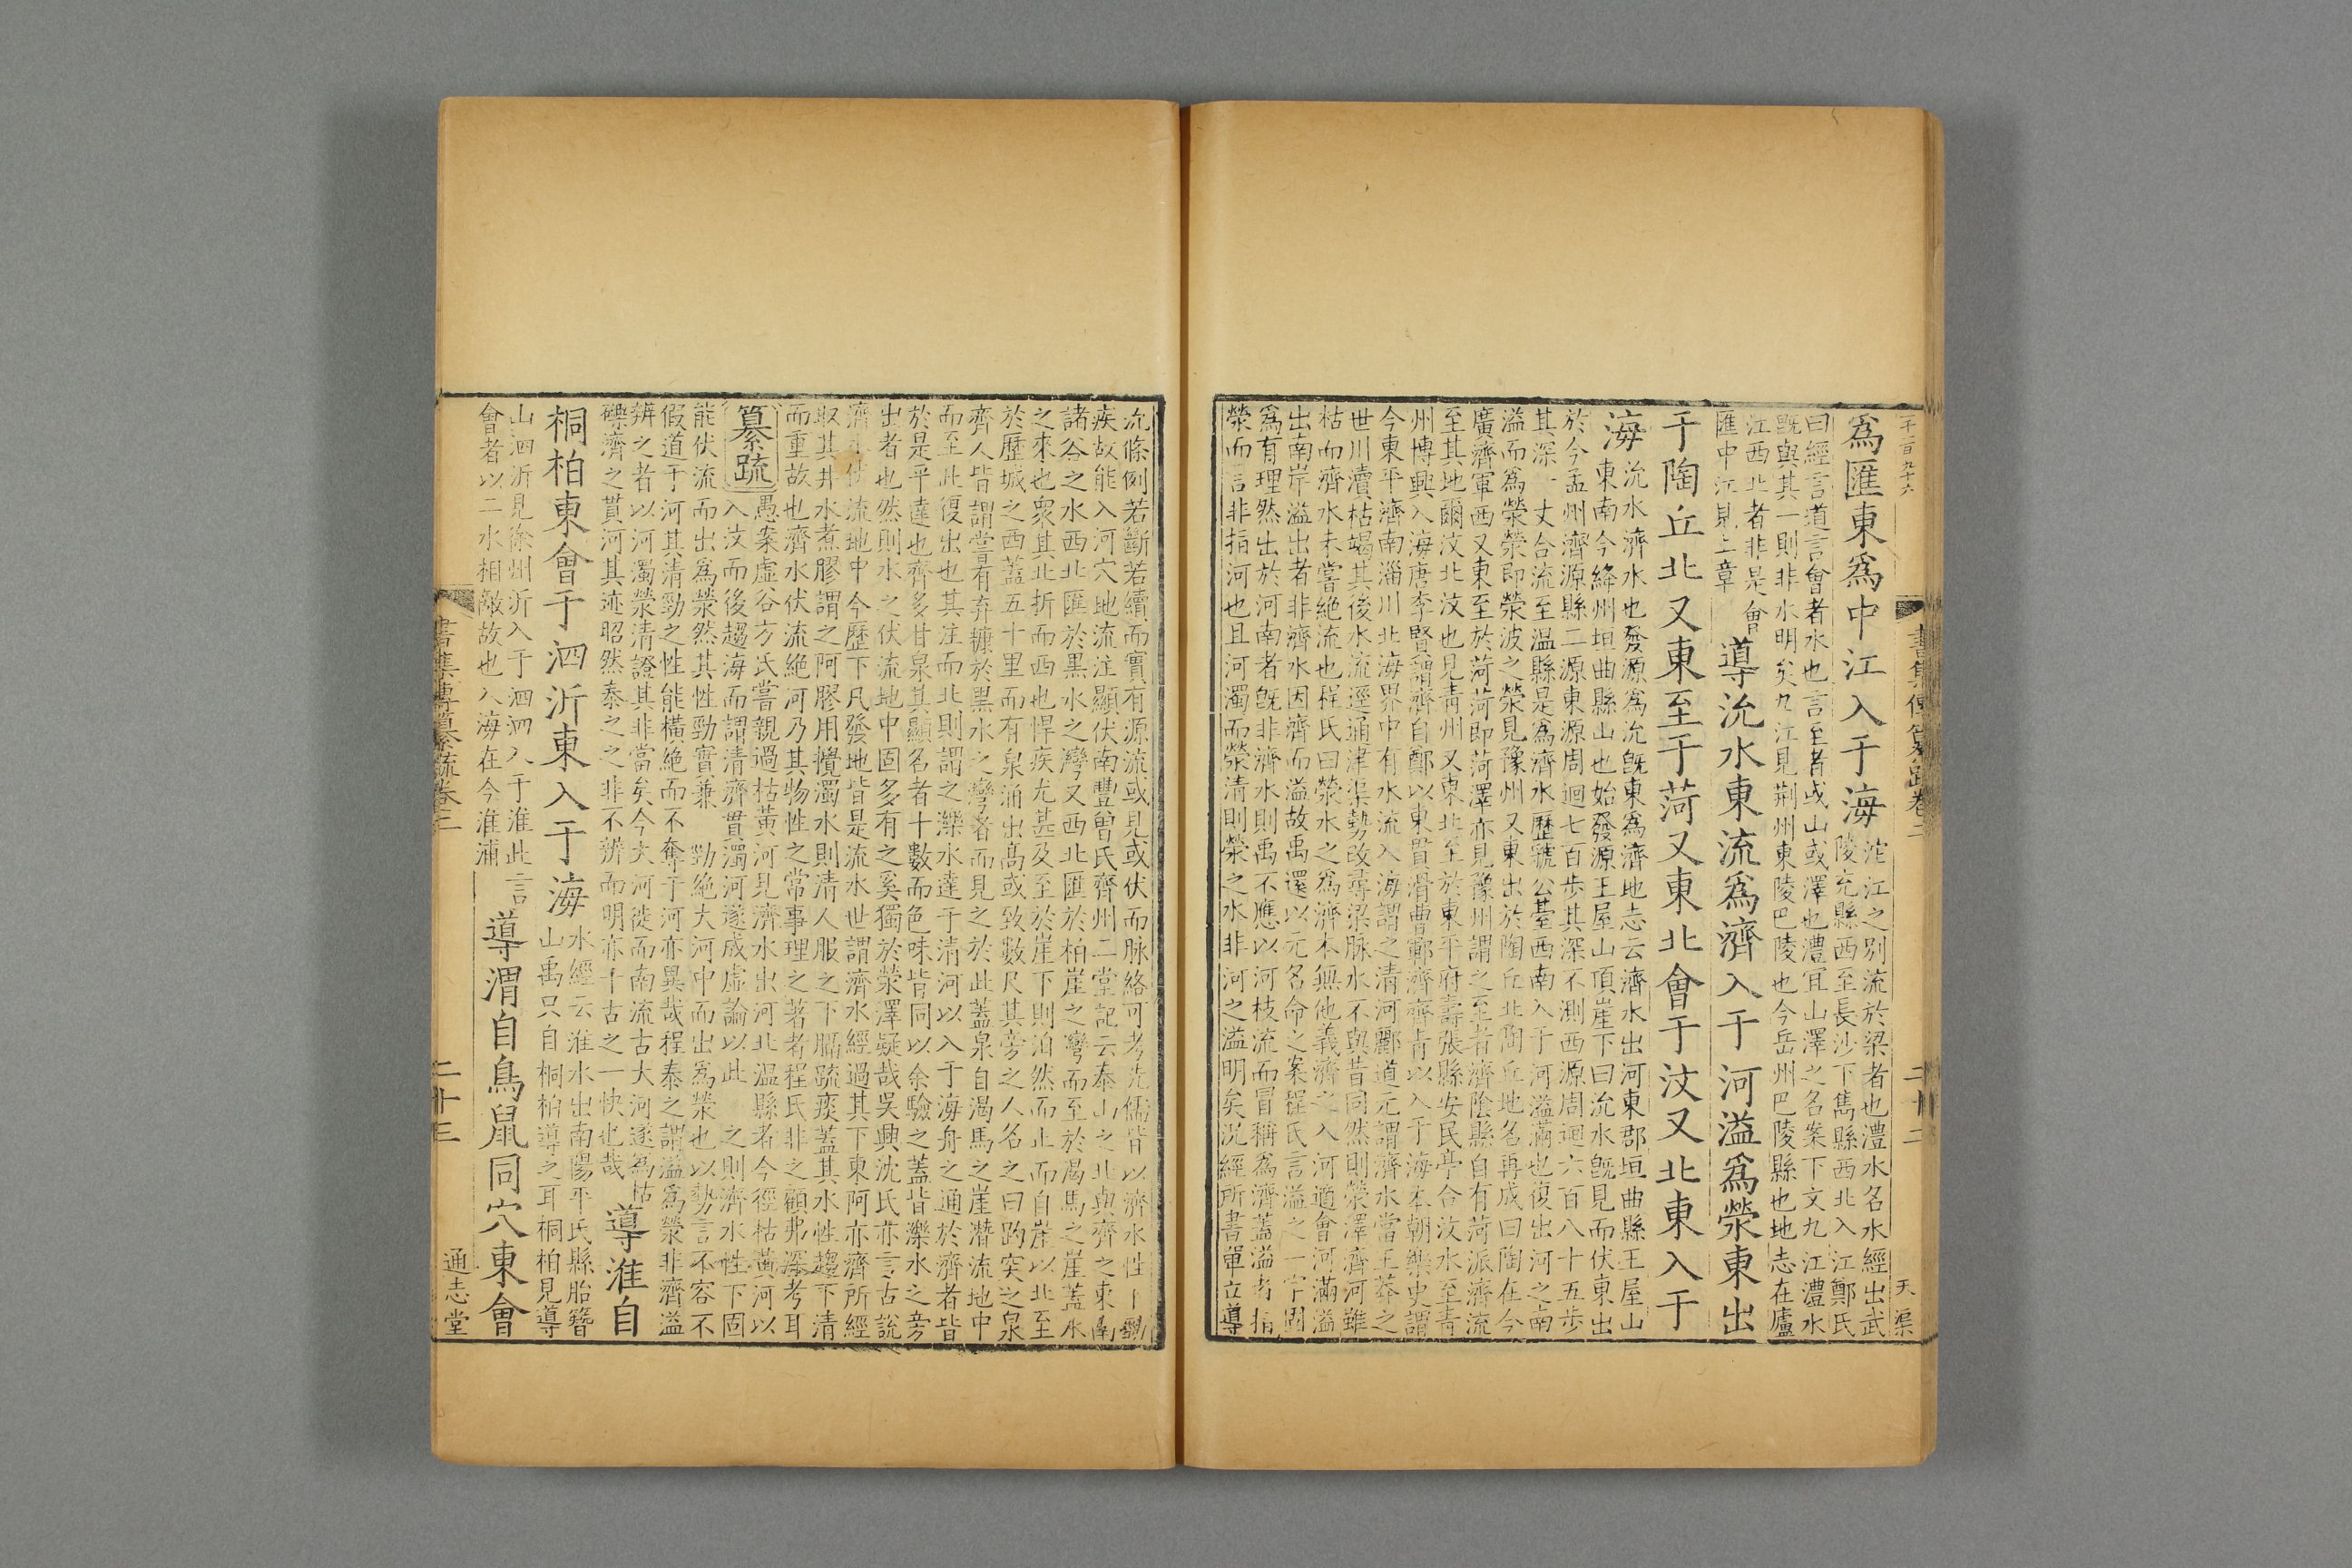 不一百九十六
書集傳纂疏卷二
二十二
天渠
爲匯東爲中江入于海
沱江之別流於梁者也澧水名水經出武
陵充縣西至長沙下雋縣西北入江鄭氏
曰經言道言會者水也言至者或山或澤也澧宜山澤之名案下文九江澧水
既與其一則非水明矣九江見荆州東陵巴陵也今岳州巴陵縣也地志在廬
江西北者非是會
匯中江見上章
導沇水東流爲濟入于河溢爲滎東出
于陶丘北又東至于菏又東北會于汶又北東入于
海
沇水濟水也發源爲沇既東爲濟地志云濟水出河東郡垣曲縣王屋山
東南今絳州垣曲縣山也始發源王屋山頂崖下曰沇水既見而伏東出
於今孟州濟源縣二源東源周迴七百步其深不測西源周迴六百八十五步
其深一丈合流至温縣是爲濟水歷虢公臺西南入于河溢滿也復出河之南
溢而爲滎滎即滎波之滎見豫州又東出於陶丘北陶丘地名再成曰陶在今
廣濟軍西又東至於菏菏即菏澤亦見豫州謂之至者濟隂縣自有菏派濟流
至其地爾汶北汶也見青州又東北至於東平府壽張縣安民亭合汶水至青
州博興入海唐李賢謂濟自鄭以東貫滑曹鄆濟齊青以入于海本朝樂史謂
今東平濟南淄川北海界中有水流入海謂之清河酈道元謂濟水當王莽之
世川瀆枯竭其後水流逕通津渠勢改尋梁脉水不與昔同然則滎澤濟河雖
枯而濟水未嘗絶流也程氏曰滎水之爲濟本無他義濟之入河適會河滿溢
出南岸溢出者非濟水因濟而溢故禹還以元名命之案程氏言溢之一字固
爲有理然出於河南者既非濟水則禹不應以河枝流而冒稱爲濟蓋溢者指
滎而言非指河也且河濁而滎清則滎之水非河之溢明矣況經所書單立導
沇條例若斷若續而實有源流或見或伏而脉絡可考先儒皆以濟水性下勁
疾故能入河穴地流注顯伏南豐曾氏齊州二堂記云泰山之北與齊之東南
諸谷之水西北匯於黑水之灣又西北匯於柏崖之灣而至於渴馬之崖蓋水
之來也衆其北折而西也悍疾尤甚及至於崖下則泊然而止而自崖以北至
於歷城之西蓋五十里而有泉涌出高或致數尺其旁之人名之曰趵突之泉
齊人皆謂嘗有弃糠於黑水之灣者而見之於此蓋泉自渴馬之崖潛流地中
而至此復出也其注而北則謂之濼水達于清河以入于海舟之通於濟者皆
於是乎達也齊多甘泉其顯名者十數而色味皆同以余驗之蓋皆濼水之旁
出者也然則水之伏流地中固多有之奚獨於滎澤疑哉吳興沈氏亦言古說
濟水伏流地中今歷下凡發地皆是流水世謂濟水經過其下東阿亦濟所經
取其井水煮膠謂之阿膠用攪濁水則清人服之下膈疏痰蓋其水性趨下清
而重故也濟水伏流絶河乃其物性之常事理之著者程氏非之顧弗深考耳
纂疏
愚案虚谷方氏嘗親過枯黃河見濟水出河北温縣者今徑枯黃河以
入汶而後趨海而謂清濟貫濁河遂成虚論以此之則濟水性下固
能伏流而出爲滎然其性勁實兼勁絶大河中而出爲滎也以勢言不容不
假道于河其清勁之性能橫絶而不奪于河亦異哉程泰之謂溢爲滎非濟溢
辨之者以河濁滎清證其非當矣今大河徙而南流古大河遂爲枯
礫濟之貫河其迹昭然泰之之非不辨而明亦千古之一快也哉
導淮自
桐柏東會于泗沂東入于海
水經云淮水出南陽平氏縣胎簪
山禹只自桐柏導之耳桐柏見導
山泗沂見徐州沂入于泗泗入于淮此言
會者以二水相敵故也入海在今淮浦
導渭自鳥鼠同穴東會
書集傳纂疏卷二
二十三
通志堂